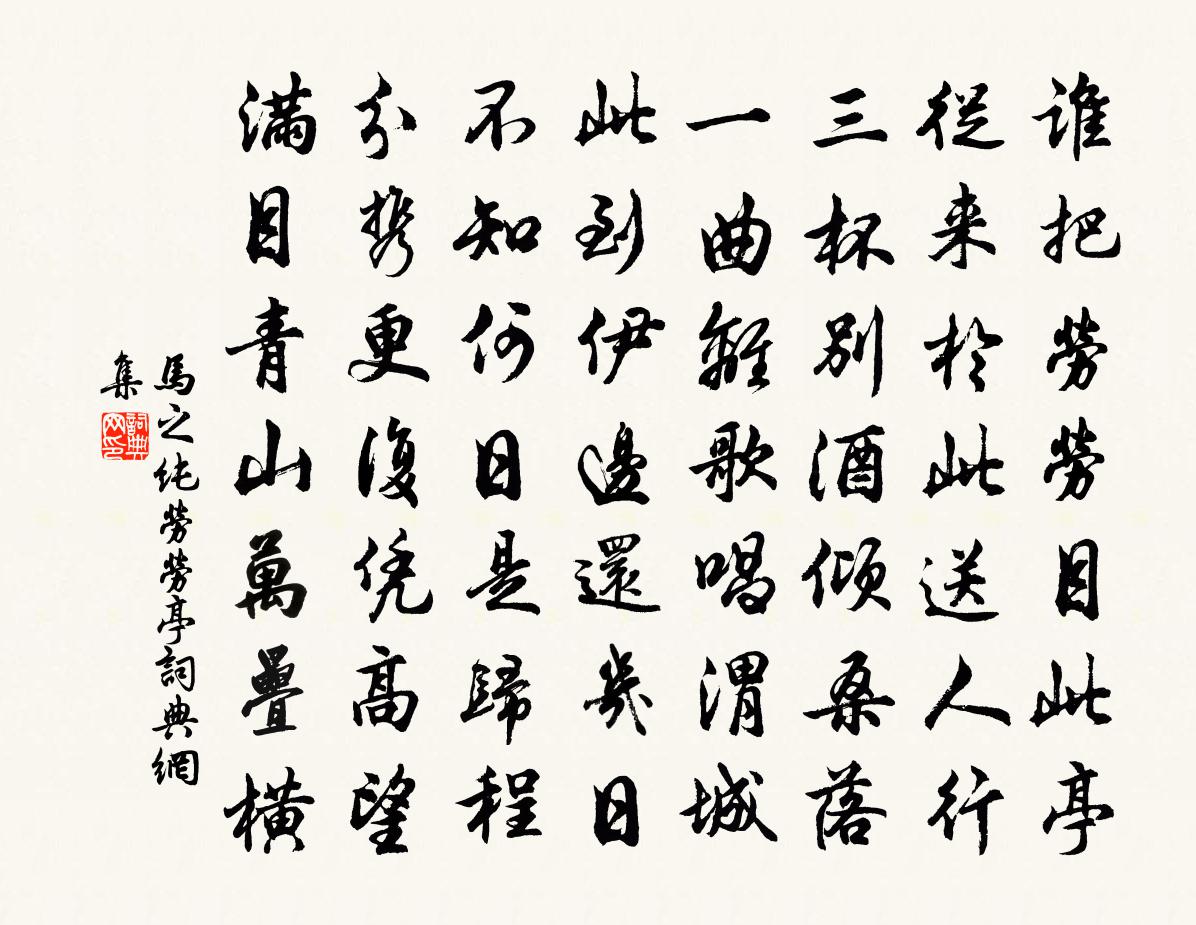 谁把勞勞目此亭
從来於此送人行
三杯别酒倾桑落
一曲離歌唱渭城
此到伊邊還幾日
不知何日是歸程
分携更復凭高望
滿目青山萬疊橫
馬之純勞勞亭詞典網
集
詞典
网印